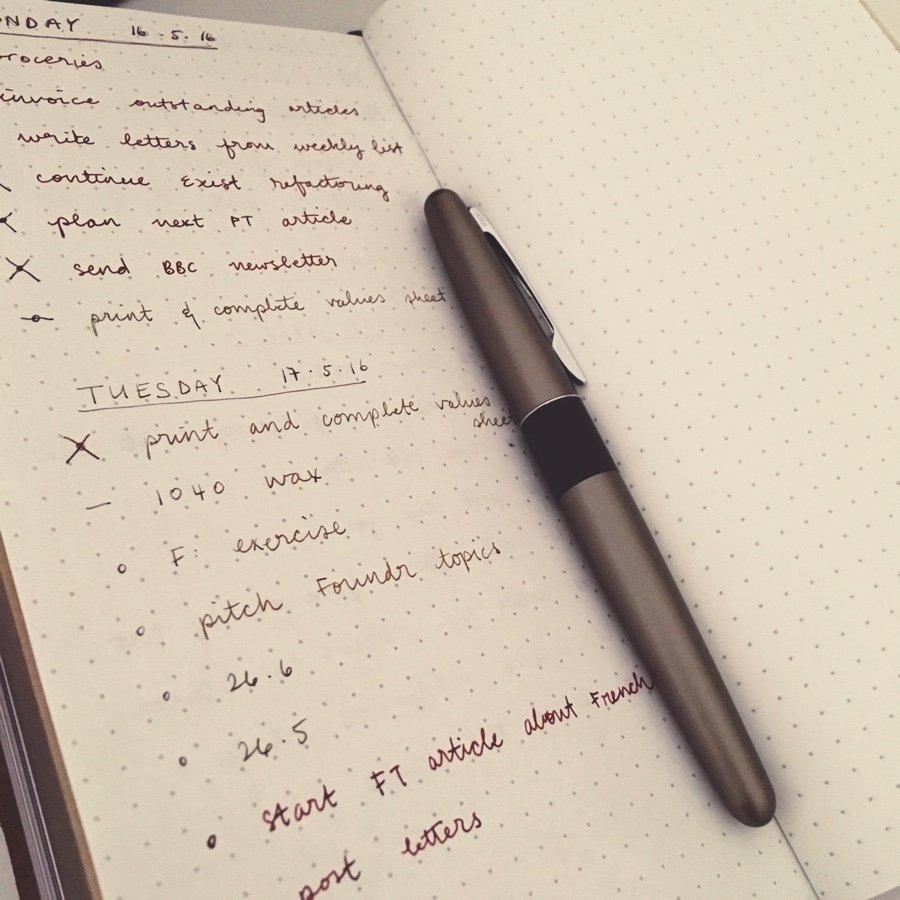 NDAY 16.5.16
roceries
invoice outstanding articles
write letters from weekly list
continue Exist refactoring
plan next FT article
send BBC newsletter
print & complete values sheet
TUESDAY 17.5.16
print and complete values
sheet
1040 wax
F: exercise
pitch Foundr topics
26.6
26.5
start FT article about French
post letters